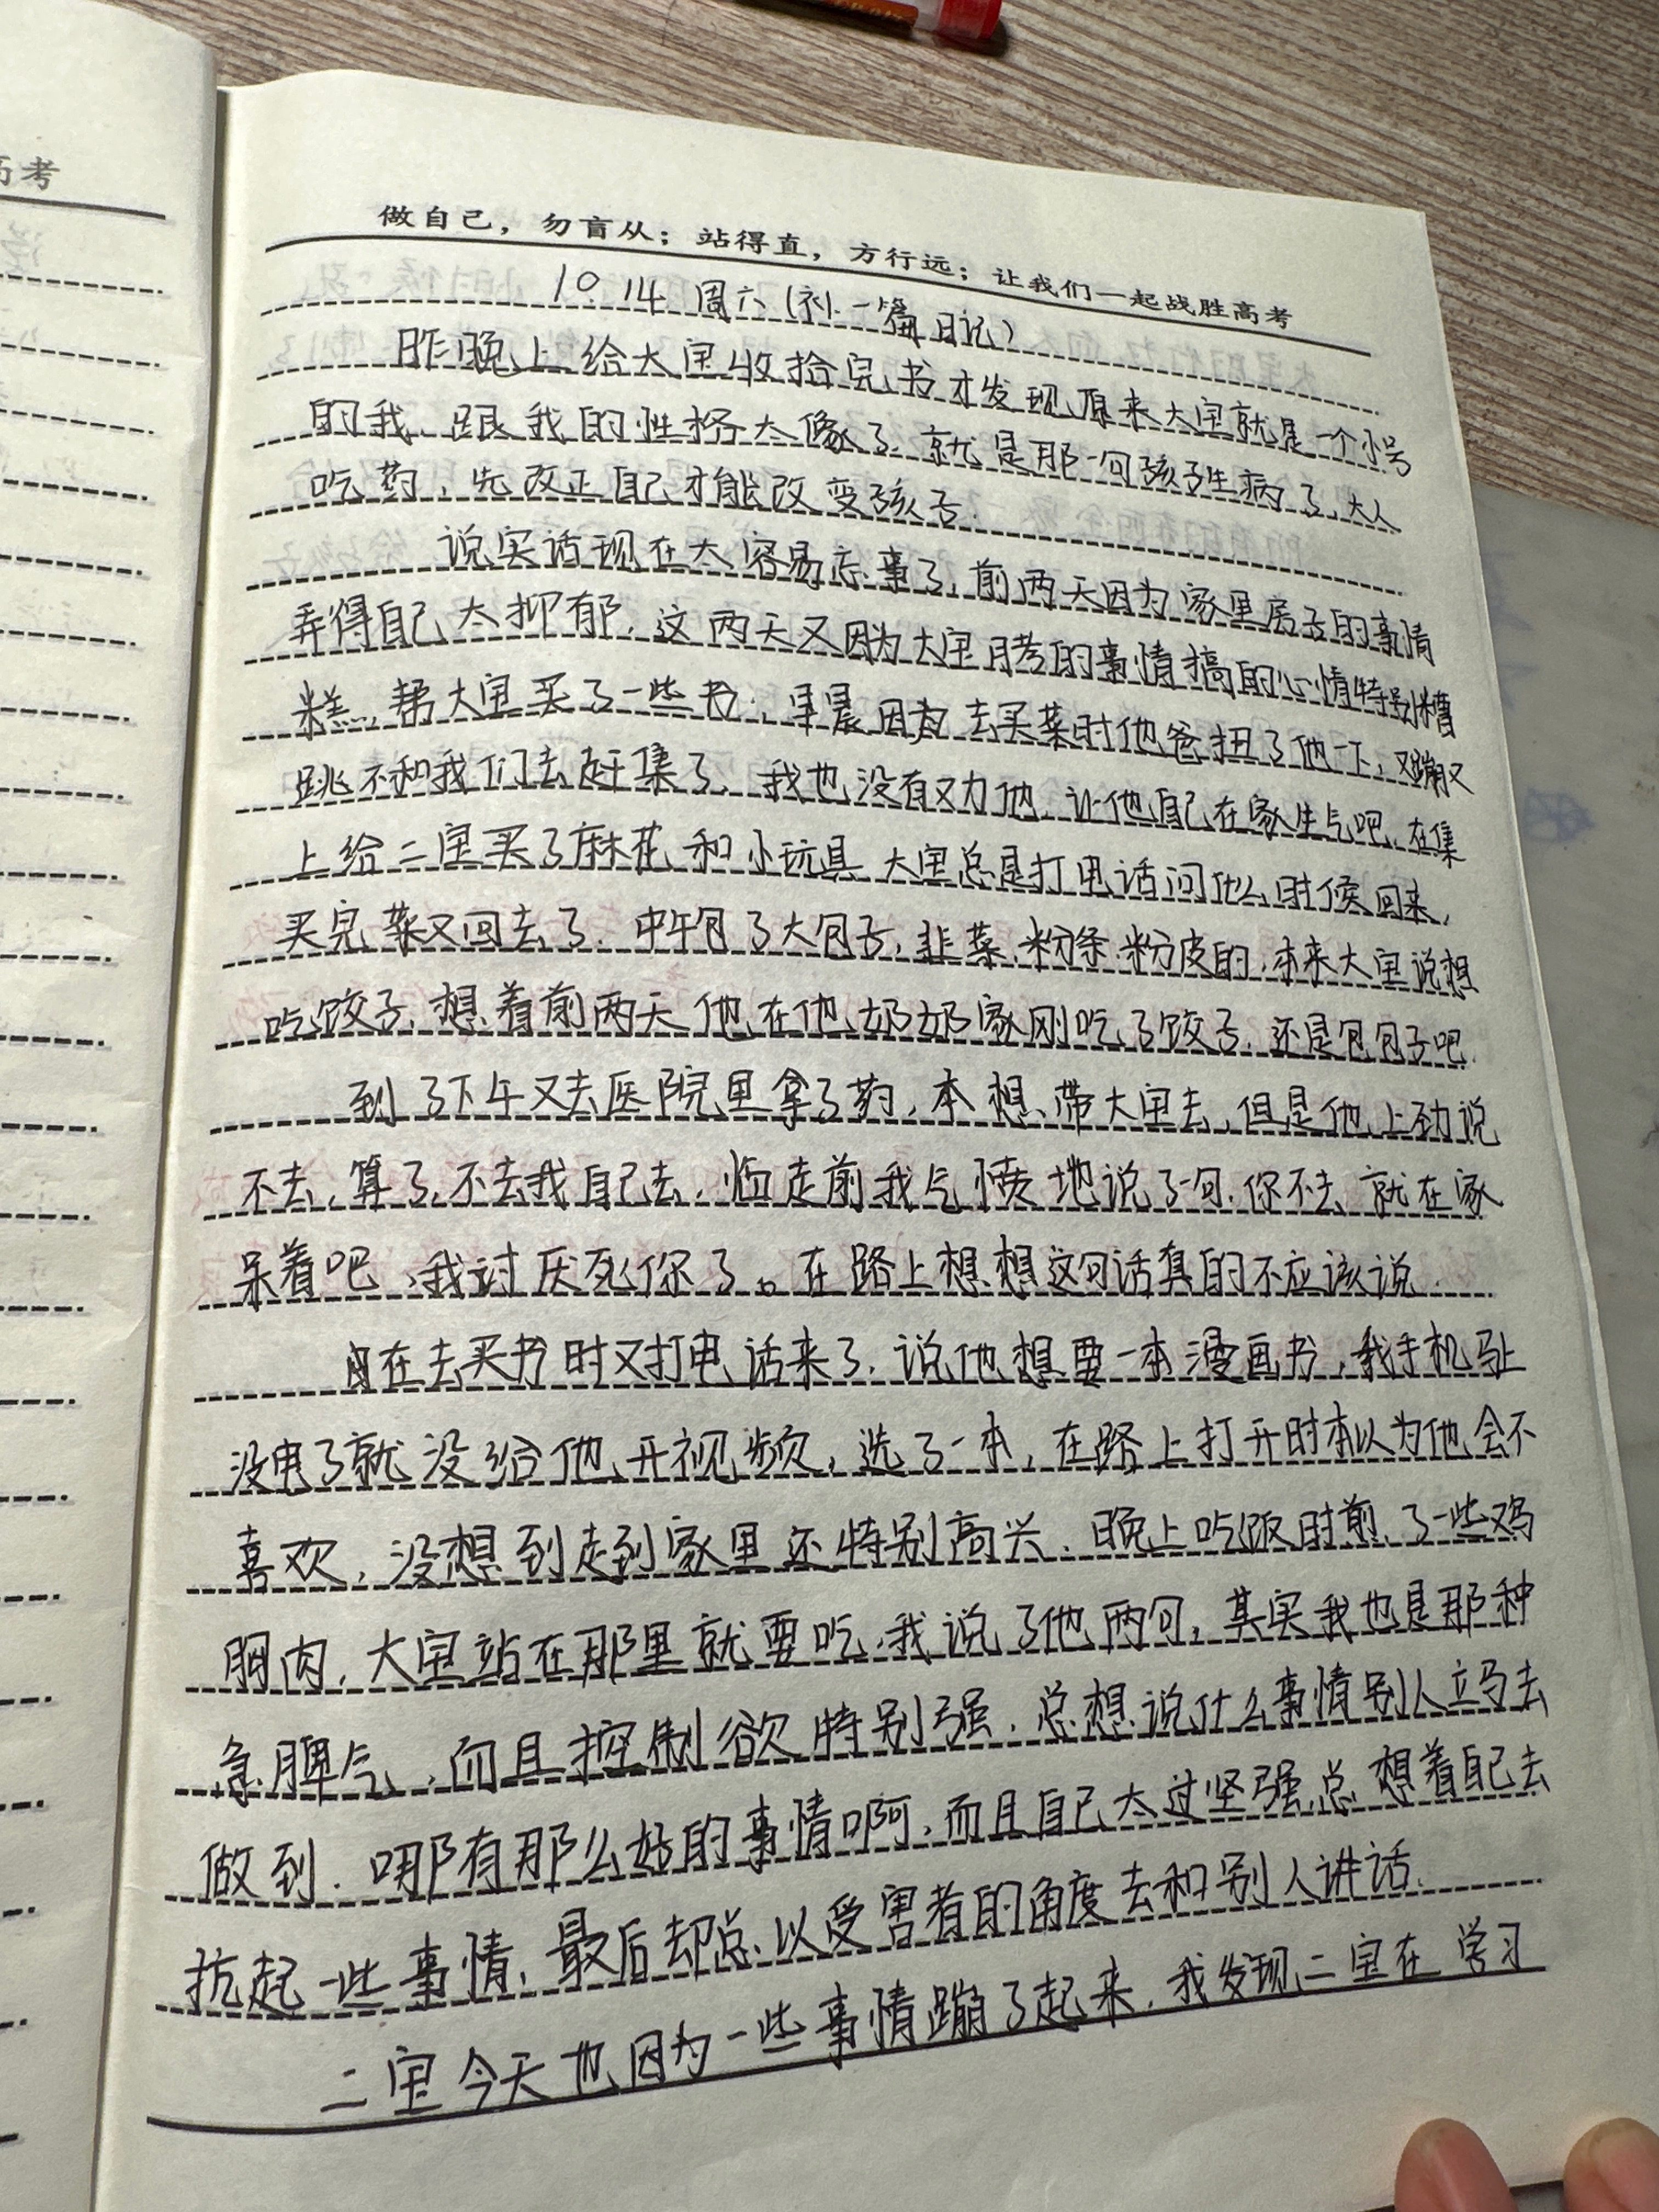 高考
做自己，勿盲从；站得直，方行远；让我们一起战胜高考
10.14 周六（补一篇日记）
昨晚上给大宝收拾完书才发现原来大宝就是一个小号
的我，跟我的性格太像了，就是那一句孩子生病了，大人
吃药，先改正自己才能改变孩子.
说实话现在太容易忘事了，前两天因为家里房子的事情
弄得自己太抑郁，这两天又因为大宝月考的事情搞的心情特别糟
糕，帮大宝买了一些书，早晨因为去买菜时他爸扭了他一下，又蹦又
跳不和我们去赶集了，我也没有劝他，让他自己在家生气吧，在集
上给二宝买了麻花和小玩具，大宝总是打电话问什么时候回来，
买完菜又回去了.中午包了大包子，韭菜.粉条.粉皮的，本来大宝说想
吃饺子，想着前两天他在他奶奶家刚吃了饺子，还是包包子吧.
到了下午又去医院里拿了药，本想带大宝去，但是他上劲说
不去，算了，不去我自己去，临走前我气愤地说了句，你不去就在家
呆着吧，我讨厌死你了。在路上想想这句话真的不应该说.
在去买书时又打电话来了，说他想要一本漫画书，我手机马上
没电了就没给他开视频，选了一本，在路上打开时本以为他会不
喜欢，没想到走到家里还特别高兴.晚上吃饭时煎了一些鸡
胸肉，大宝站在那里就要吃，我说了他两句，其实我也是那种
急脾气，而且控制欲特别强，总想说什么事情别人立马去
做到.哪有那么好的事情啊，而且自己太过坚强，总想着自己去
抗起一些事情，最后却总以受害者的角度去和别人讲话.
二宝今天也因为一些事情蹦了起来，我发现二宝在学习